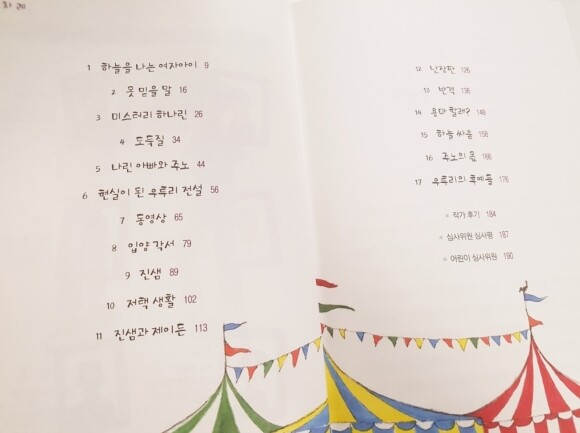 차 례
1 하늘을 나는 여자아이 9
2 못 믿을 말 16
3 미스터리 하나린 26
4 도둑질 34
5 나린 아빠와 주노 44
6 현실이 된 우투리 전설 56
7 동영상 65
8 입양 각서 79
9 진샘 89
10 저택 생활 102
11 진샘과 제이든 113
12 난장판 126
13 반격 136
14 용마 할래? 148
15 하늘 싸움 158
16 주노의 몸 168
17 우투리의 후예들 178
작가 후기 184
심사위원 심사평 187
어린이 심사위원 190